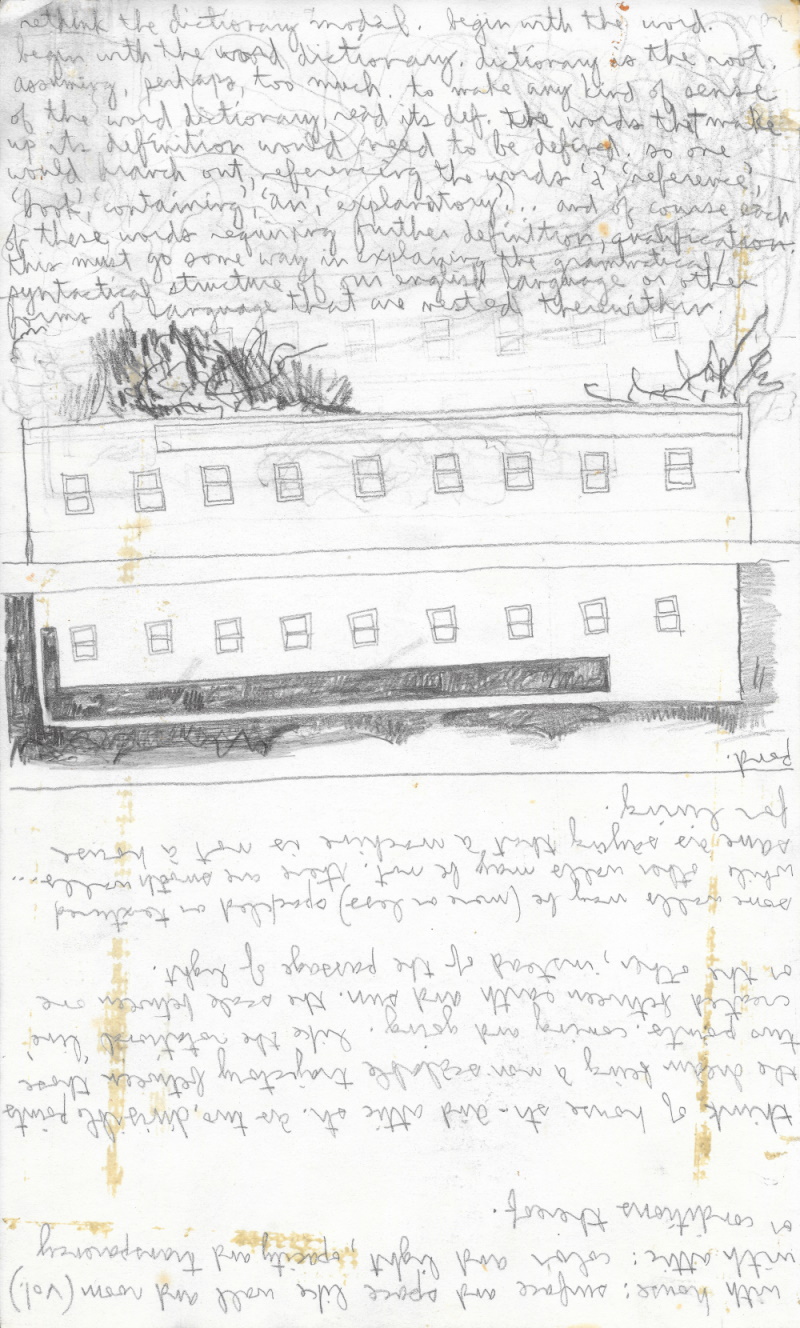 rethink the dictionary modal. begin with the word.
begin with the word dictionary. dictionary as the root.
assuming, perhaps, too much. to make any kind of sense
of the word dictionary, read its def. the words that make
up its definition would need to be defined. so one
would branch out, referencing the words 'a', 'reference',
'book', 'containing', 'an', 'explanatory'... and of course each
of these words requiring further definition, qualification.
this must go some way in explaining the grammatical/
syntactical structure of our english language or other
forms of language that are nested therewithin.
with house: surface and space like wall and room (vol.)
with attic: color and light, opacity and transparency
or conditions thereof.
think of house st. and attic st. as two, divisible points
the dream being a non scalable trajectory between those
two points. coming and going. like the rotational 'line'
created between earth and sun. the scale between one
or the other, instead of the passage of light.
some walls may be (more or less) speckled or textured
while other walls may be not. there are smooth walls...
same as saying that a machine is not a house
for living.